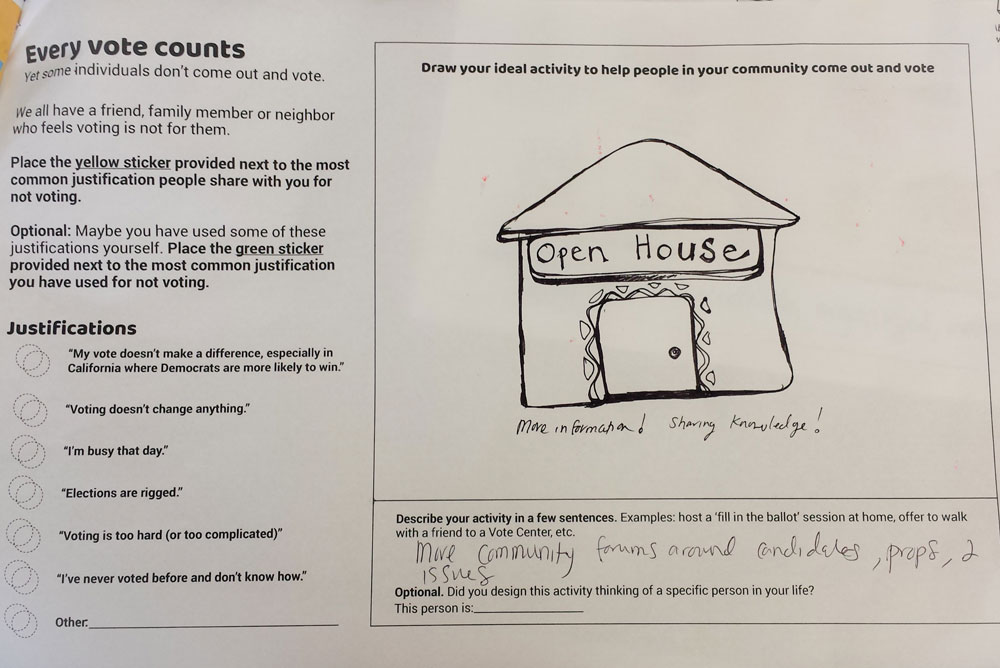 Every vote counts
Yet some individuals don't come out and vote.
We all have a friend, family member or neighbor
who feels voting is not for them.
Place the yellow sticker provided next to the most
common justification people share with you for
not voting.
Optional: Maybe you have used some of these
justifications yourself. Place the green sticker
provided next to the most common justification
you have used for not voting.
Justifications
"My vote doesn't make a difference, especially in
California where Democrats are more likely to win."
"Voting doesn't change anything."
"I'm busy that day."
"Elections are rigged."
"Voting is too hard (or too complicated)"
"I've never voted before and don't know how."
Other:
Draw your ideal activity to help people in your community come out and vote
Open House
More information! Sharing knowledge!
Describe your activity in a few sentences. Examples: host a 'fill in the ballot' session at home, offer to walk
with a friend to a Vote Center, etc.
More community forums around candidates, props,
issues
Optional. Did you design this activity thinking of a specific person in your life?
This person is: